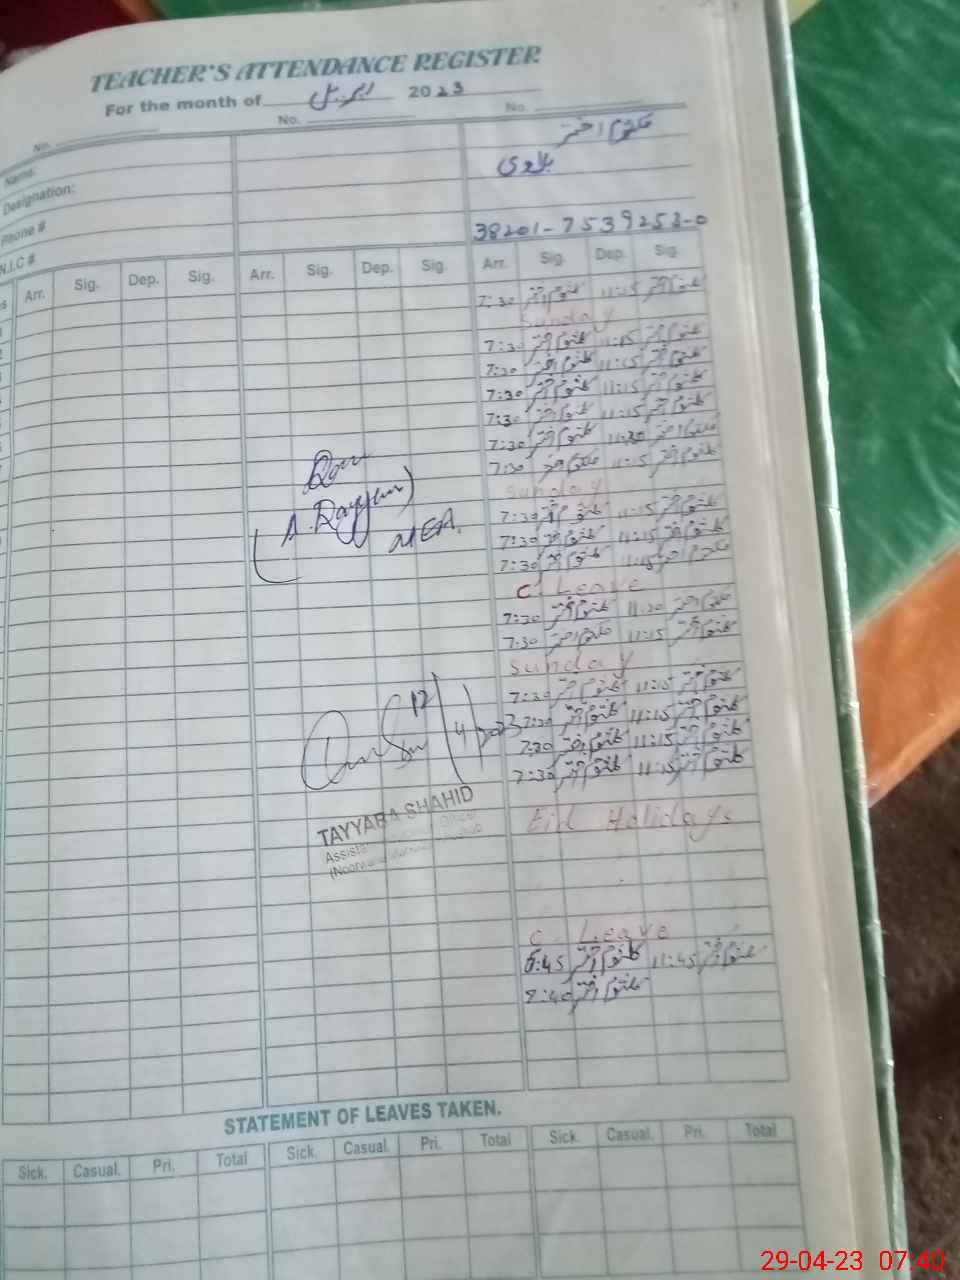 TEACHER'S ATTENDANCE REGISTER
For the month of اپریل 2023
No. No. No.
Name: کلثوم اختر
Designation:
Phone #
N.I.C # 38201-7539253-0
Arr. Sig. Dep. Sig. Arr. Sig. Dep. Sig. Arr. Sig. Dep. Sig.
7:30 کلثوم اختر 11:15 کلثوم اختر
Sunday
7:30 کلثوم اختر 11:15 کلثوم اختر
7:30 کلثوم اختر 11:15 کلثوم اختر
7:30 کلثوم اختر 11:15 کلثوم اختر
7:30 کلثوم اختر 11:15 کلثوم اختر
7:30 کلثوم اختر 11:30 کلثوم اختر
7:30 کلثوم اختر 11:15 کلثوم اختر
Sunday
7:30 کلثوم اختر 11:15 کلثوم اختر
7:30 کلثوم اختر 11:15 کلثوم اختر
7:30 کلثوم اختر 11:15 کلثوم اختر
C Leave
7:30 کلثوم اختر 11:20 کلثوم اختر
7:30 کلثوم اختر 11:15 کلثوم اختر
Sunday
7:30 کلثوم اختر 11:15 کلثوم اختر
7:30 کلثوم اختر 11:15 کلثوم اختر
7:30 کلثوم اختر 11:15 کلثوم اختر
7:30 کلثوم اختر 11:15 کلثوم اختر
Eid Holidays
C. Leave
کلثوم اختر 11:45 کلثوم اختر
کلثوم اختر
MEA.
12/4/2023
TAYYABA SHAHID
STATEMENT OF LEAVES TAKEN.
Sick. Casual. Pri. Total Sick. Casual. Pri. Total Sick. Casual. Pri. Total
29-04-23 07:40